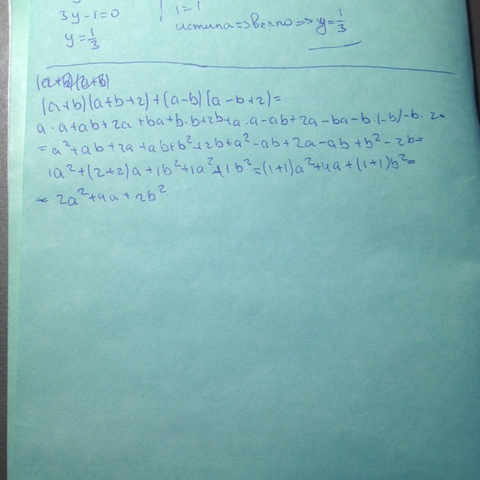 3y-1=0
y=1/3
1=1
истина=>верно=>y=1/3
(a+b)(a+b+2)+(a-b)(a-b+2)=
a·a+ab+2a+ba+b·b+2b+a·a-ab+2a-ba-b·(-b)-b·2=
=a²+ab+2a+ab+b²+2b+a²-ab+2a-ab+b²-2b=
1a²+(2+2)a+1b²+1a²+1b²=(1+1)a²+4a+(1+1)b²=
=2a²+4a+2b²